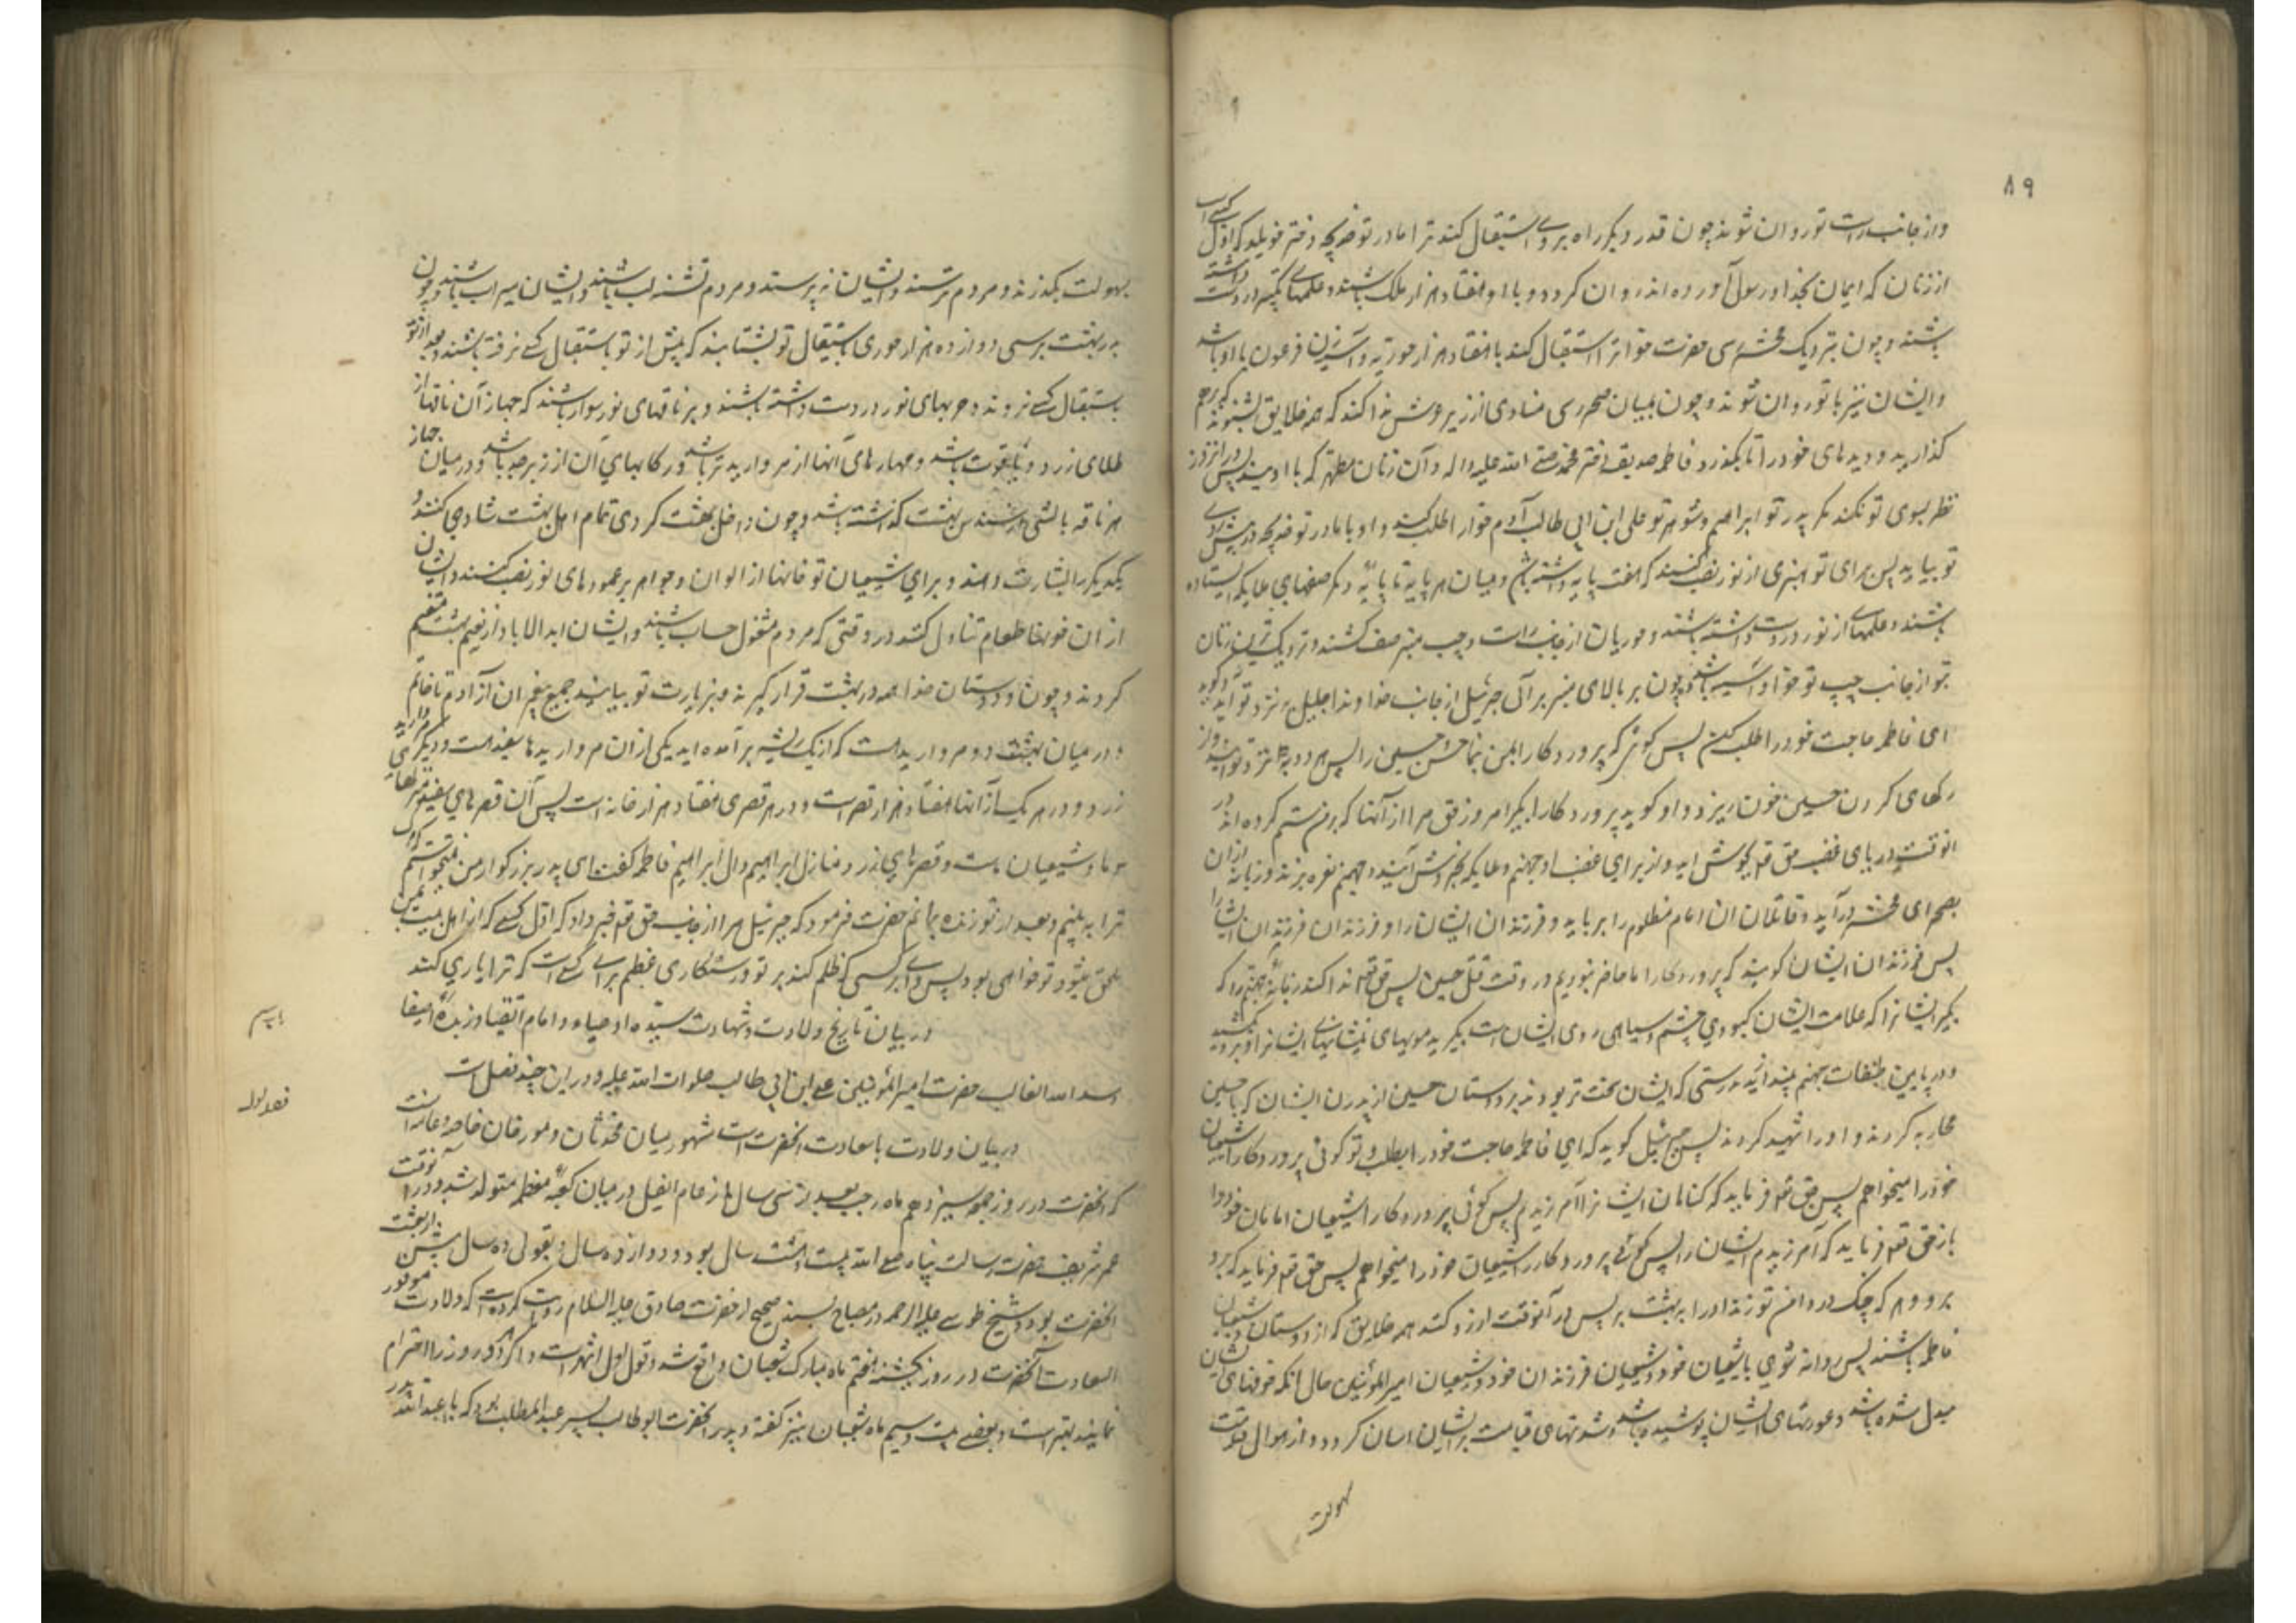 ۸۹
واز جانب راست تو روان شوند چون قدر دیگر راه بروی استقبال کند ترا مادر تو خدیجه دختر خویلد که اول کسی است
از زنان که ایمان بخدا و رسول آورده اند روان کردد و با او هفتاد هزار ملک باشند و علمهای تکبیر در دست داشته
باشند و چون بنزدیک محشر رسی حضرت حوا ترا استقبال کند با هفتاد هزار حوریه و آسیه زن فرعون با او باشد
وایشان نیز با تو روان شوند و چون بمیان محشر رسی منادی از زیر عرش ندا کند که همه خلایق بشنوند که برهم
کذارید دیدهای خود را تا بکذرد فاطمه صدیقه دختر محمد صلی الله علیه واله و آن زنان مطهر که با اویند پس در انروز
نظر بسوی تو نکند مکر پدر تو ابراهیم و شوهر تو علی ابن ابی طالب آدم حوا را طلب کند و او با مادر تو خدیجه در پیش روی
تو بیاید پس برای تو منبری از نور نصب کنند که هفت پایه داشته باشد ومیان هر پایه تا پایهٔ دیکر صفهای ملایکه ایستاده
باشند و علمهای از نور در دست داشته باشند و حوریان از جانب راست و چپ منبر صف کشند و نزدیک ترین زنان
بتو از جانب چپ تو حوا و آسیه باشند و چون بر بالای منبر برآئی جبرئیل از جانب خداوند جلیل بنزد تو آید و کوید
ای فاطمه حاجت خود را طلب کن پس کوئی که پروردکارا بمن بنما حسن و حسین را پس هر دو بنزد تو آیند و از
رکهای کردن حسین خون ریزد و او کوید پروردکارا بکیر امروز حق مرا از آنها که بر من ستم کرده اند در
انوقت دریای غضب حق تعم بجوش اید و از برای غضب او جهنم و ملایکه بخروش آیند و جهنم نعره بزند و زبانهٔ از ان
بصحرای محشر درآید و قاتلان ان امام مظلوم را برباید و فرزندان ایشان را و فرزندان فرزندان ایشانرا
پس فرزندان ایشان کویند که پروردکارا ما حاضر نبودیم در وقت قتل حسین پس حق تعم ندا کند زبانهٔ جهنم را که
بکیر ایشانرا که علامت ایشان کبودی چشم و سیاهی روی ایشان است بکیرید مویهای پیشانیهای ایشانرا و بکشید
و در پایین طبقات جهنم بیندازید بدرستی که ایشان سخت تر بودند بر دوستان حسین از پدرن ایشان که با حسین
محاربه کردند و او را شهید کردند پس جبرئیل کوید که ای فاطمه حاجت خود را بطلب و تو کوئی پروردکارا شیعیان
خود را میخواهم پس حق تعم فرماید که کناهان ایشانرا آمرزیدم پس کوئی پروردکارا شیعیان امامان خود را
باز حق تعم فرماید که آمرزیدم ایشان را پس کوئی پروردکارا شیعیان خود را میخواهم پس حق تعم فرماید که برو
برو و هر که چنک در دامن تو زند او را به بهشت بر پس در آنوقت ارزو کنند همه خلایق که از دوستان و شیعیان
فاطمه باشند پس روانه شوی با شیعیان خود و شیعیان فرزندان خود و شیعیان امیرالمؤمنین حال انکه خوفهای ایشان
مبدل شده باشد و عورتهای ایشان پوشیده باشد و شدتهای قیامت بر ایشان اسان کردد و از اهوال قیامت
بهولت
بهولت بکذرند و مردم ترسند و ایشان نه پرستند و مردم تشنه لب باشند و ایشان سیراب باشند و چون
به بهشت برسی دوازده هزار حوری باستقبال تو بشتابند که پیش از تو باستقبال کسی نرفته باشند و بعد از تو
باستقبال کسی نروند و حربهای نور در دست داشته باشند و بر ناقهای نور سوار باشند که جهاز آن ناقها از
طلای زرد و یاقوت باشد و مهارهای آنها از مروارید تر باشد و رکابهای آن از زبرجد باشد و در میان جهاز
هر ناقه بالشی از سندس بهشت کذاشته باشد و چون داخل بهشت کردی تمام اهل بهشت شادی کنند و
یکدیکر را بشارت دهند و برای شیعیان تو خانها از الوان و جواهر بر عمودهای نور نصب کنند و ایشان
از ان خوانها طعام تناول کنند در وقتی که مردم مشغول حساب باشند و ایشان ابدالاباد از نعیم بهشت متنعم
کردند و چون دوستان خدا همه در بهشت قرار کیرند و بزیارت تو بیایند جمیع پیغمبران از آدم تا خاتم
و در میان بهشت دو مروارید است که از یک ریشه برآمده اید یکی از ان مرواریدها سفید است و دیکری مروارید
زرد و در هر یک از آنها هفتاد هزار قصر است و در هر قصری هفتاد هزار خانه است پس آن قصرهای سفید منزلهای
ما و شیعیان ماست و قصرهای زرد منازل ابراهیم وال ابراهیم فاطمه کفت ای پدر بزرکوار من نمیخواستم که مرک
ترا به بینم و بعد از تو زنده بمانم حضرت فرمود که جبرئیل مرا از جانب حق تعم خبر داد که اول کسی که از اهل بیت من
بمن ملحق میشود تو خواهی بود پس وای بر کسی که ظلم کند بر تو و رستکاری عظیم برای کسی است که ترا یاری کند
باب سیم
در بیان تاریخ ولادت و شهادت سید اوصیاء و امام اتقیا و زبدهٔ اصفیا
اسد الله الغالب حضرت امیرالمؤمنین علی ابن ابی طالب صلوات الله علیه و در این چند فصل است
فصل اول
در بیان ولادت با سعادت انحضرت است مشهور میان محدثان و مورخان خاصه و عامه انست
که انحضرت در روز جمعه سیزدهم ماه رجب بعد از سی سال از عام الفیل در میان کعبهٔ معظمه متولد شد و در انوقت
عمر شریف حضرت رسالت پناه صلی الله بیست و هشت سال بود و دوازده سال و بقولی ده سال پیش از بعثت
انحضرت بود و شیخ طوسی علیه الرحمه در مصباح بسند صحیح از حضرت صادق علیه السلام روایت کرده است که ولادت موفور
السعادت آنحضرت در روز یکشنبه هفتم ماه مبارک شعبان واقع شد و قول اول اشهر است و اکر هر دو روز را احترام
نمایند بهتر است و بعضی بیست و سیم ماه شعبان نیز کفته و پدر انحضرت ابو طالب پسر عبدالمطلب بود که با عبدالله پدر